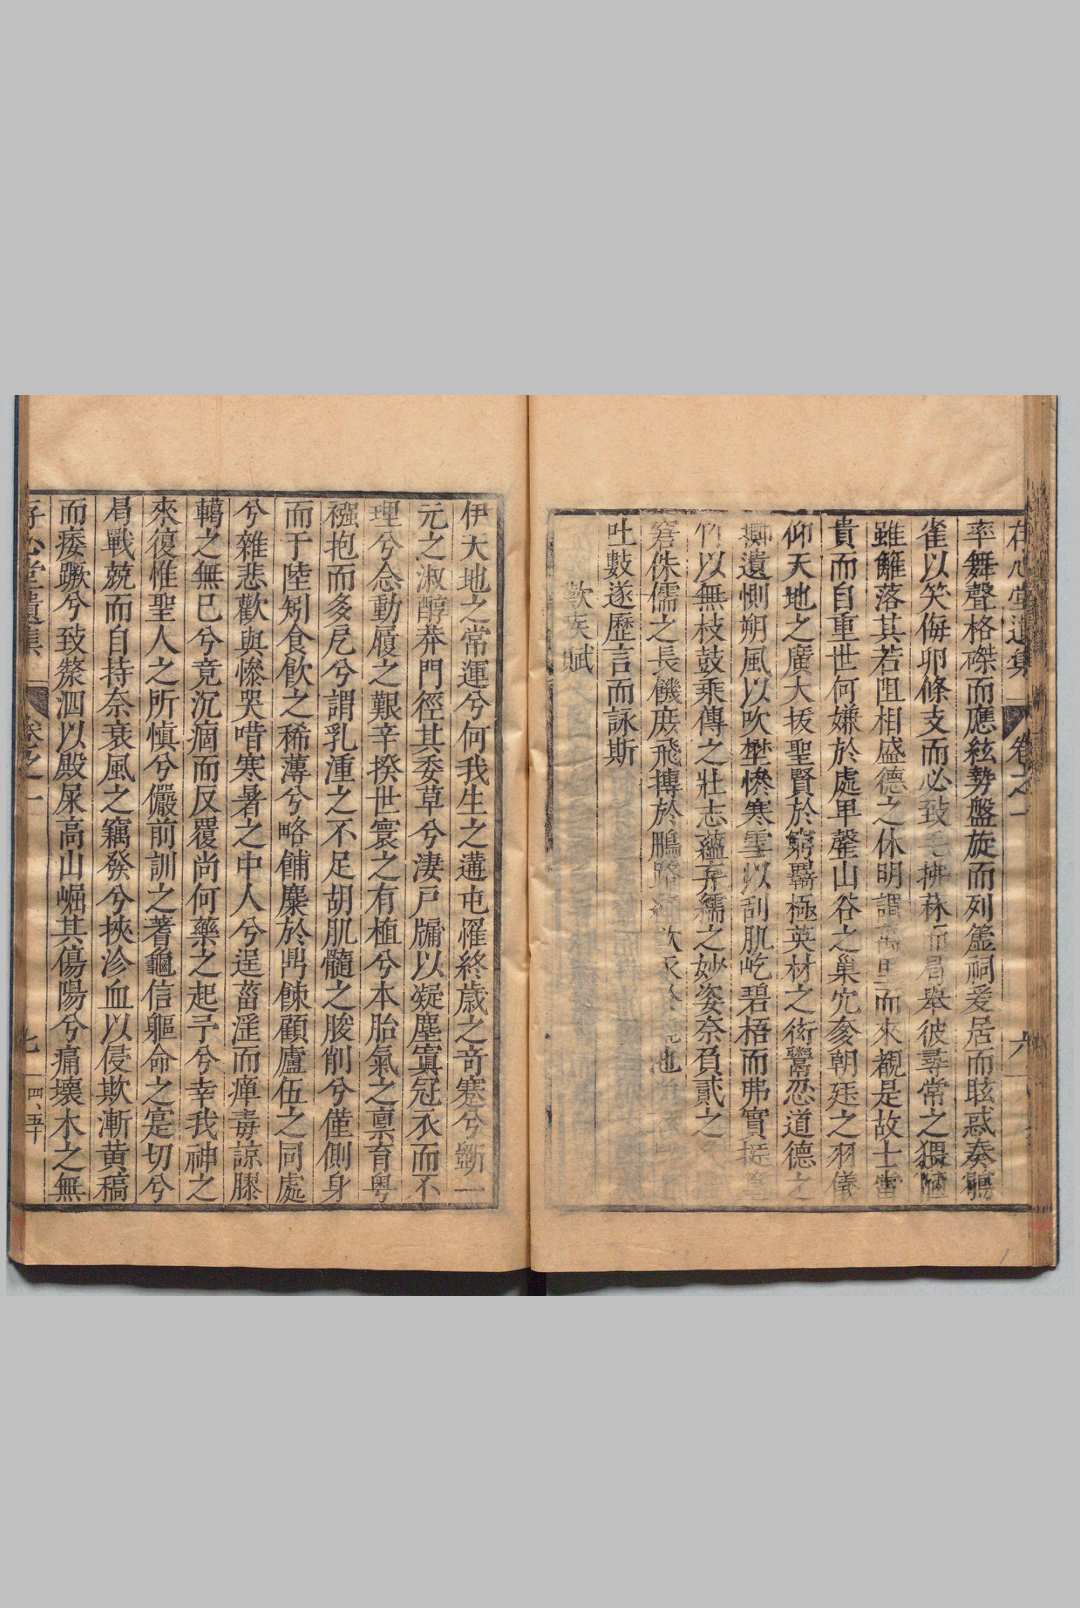 存心堂遺集 卷之一 六
率舞聲格磔而應絃勢盤旋而列簴祠爰居而眩惑奏鶴
雀以笑侮卯條支而必致
雖籬落其若阻相盛德之休明謂 而來覲是故士當
貴而自重世何嫌於處卑罄山谷之巢穴參朝廷之羽儀
仰天地之廣大拔聖賢於窮羇極英材之銜鬻忍道德之
遺惻朔風以吹壄慘寒雪以刮肌屹碧梧而弗實挺
竹以無枝鼓乘傳之壯志蘊弃繻之妙姿奈負貳之
窘侏儒之長饑庶飛摶於鵬
吐數遂歷言而詠斯
歎疾賦
伊天地之常運兮何我生之遘屯罹終歲之奇蹇兮斲一
元之淑醇莽門徑其委草兮淒戶牖以凝塵寘冠衣而不
理兮念動履之艱辛揆世寰之有植兮本胎氣之禀育粵
襁抱而多戹兮謂乳湩之不足胡肌髓之朘削兮僅側身
而于陸矧食飲之稀薄兮略餔麋於鼎餗顧廬伍之同處
兮雜悲歡與慘哭唶寒暑之中人兮逞菑滛而瘅毒諒膠
轕之無已兮竟沉痼而反覆尚何藥之起予兮幸我神之
來復惟聖人之所愼兮儼前訓之蓍龜信軀命之寔切兮
曷戰兢而自持奈衰風之竊發兮挾沴血以侵欺漸黃稿
而痿蹶兮致漦泗以殿屎高山崛其傷陽兮痛壞木之無
存心堂遺集 卷之一 七 四、五十